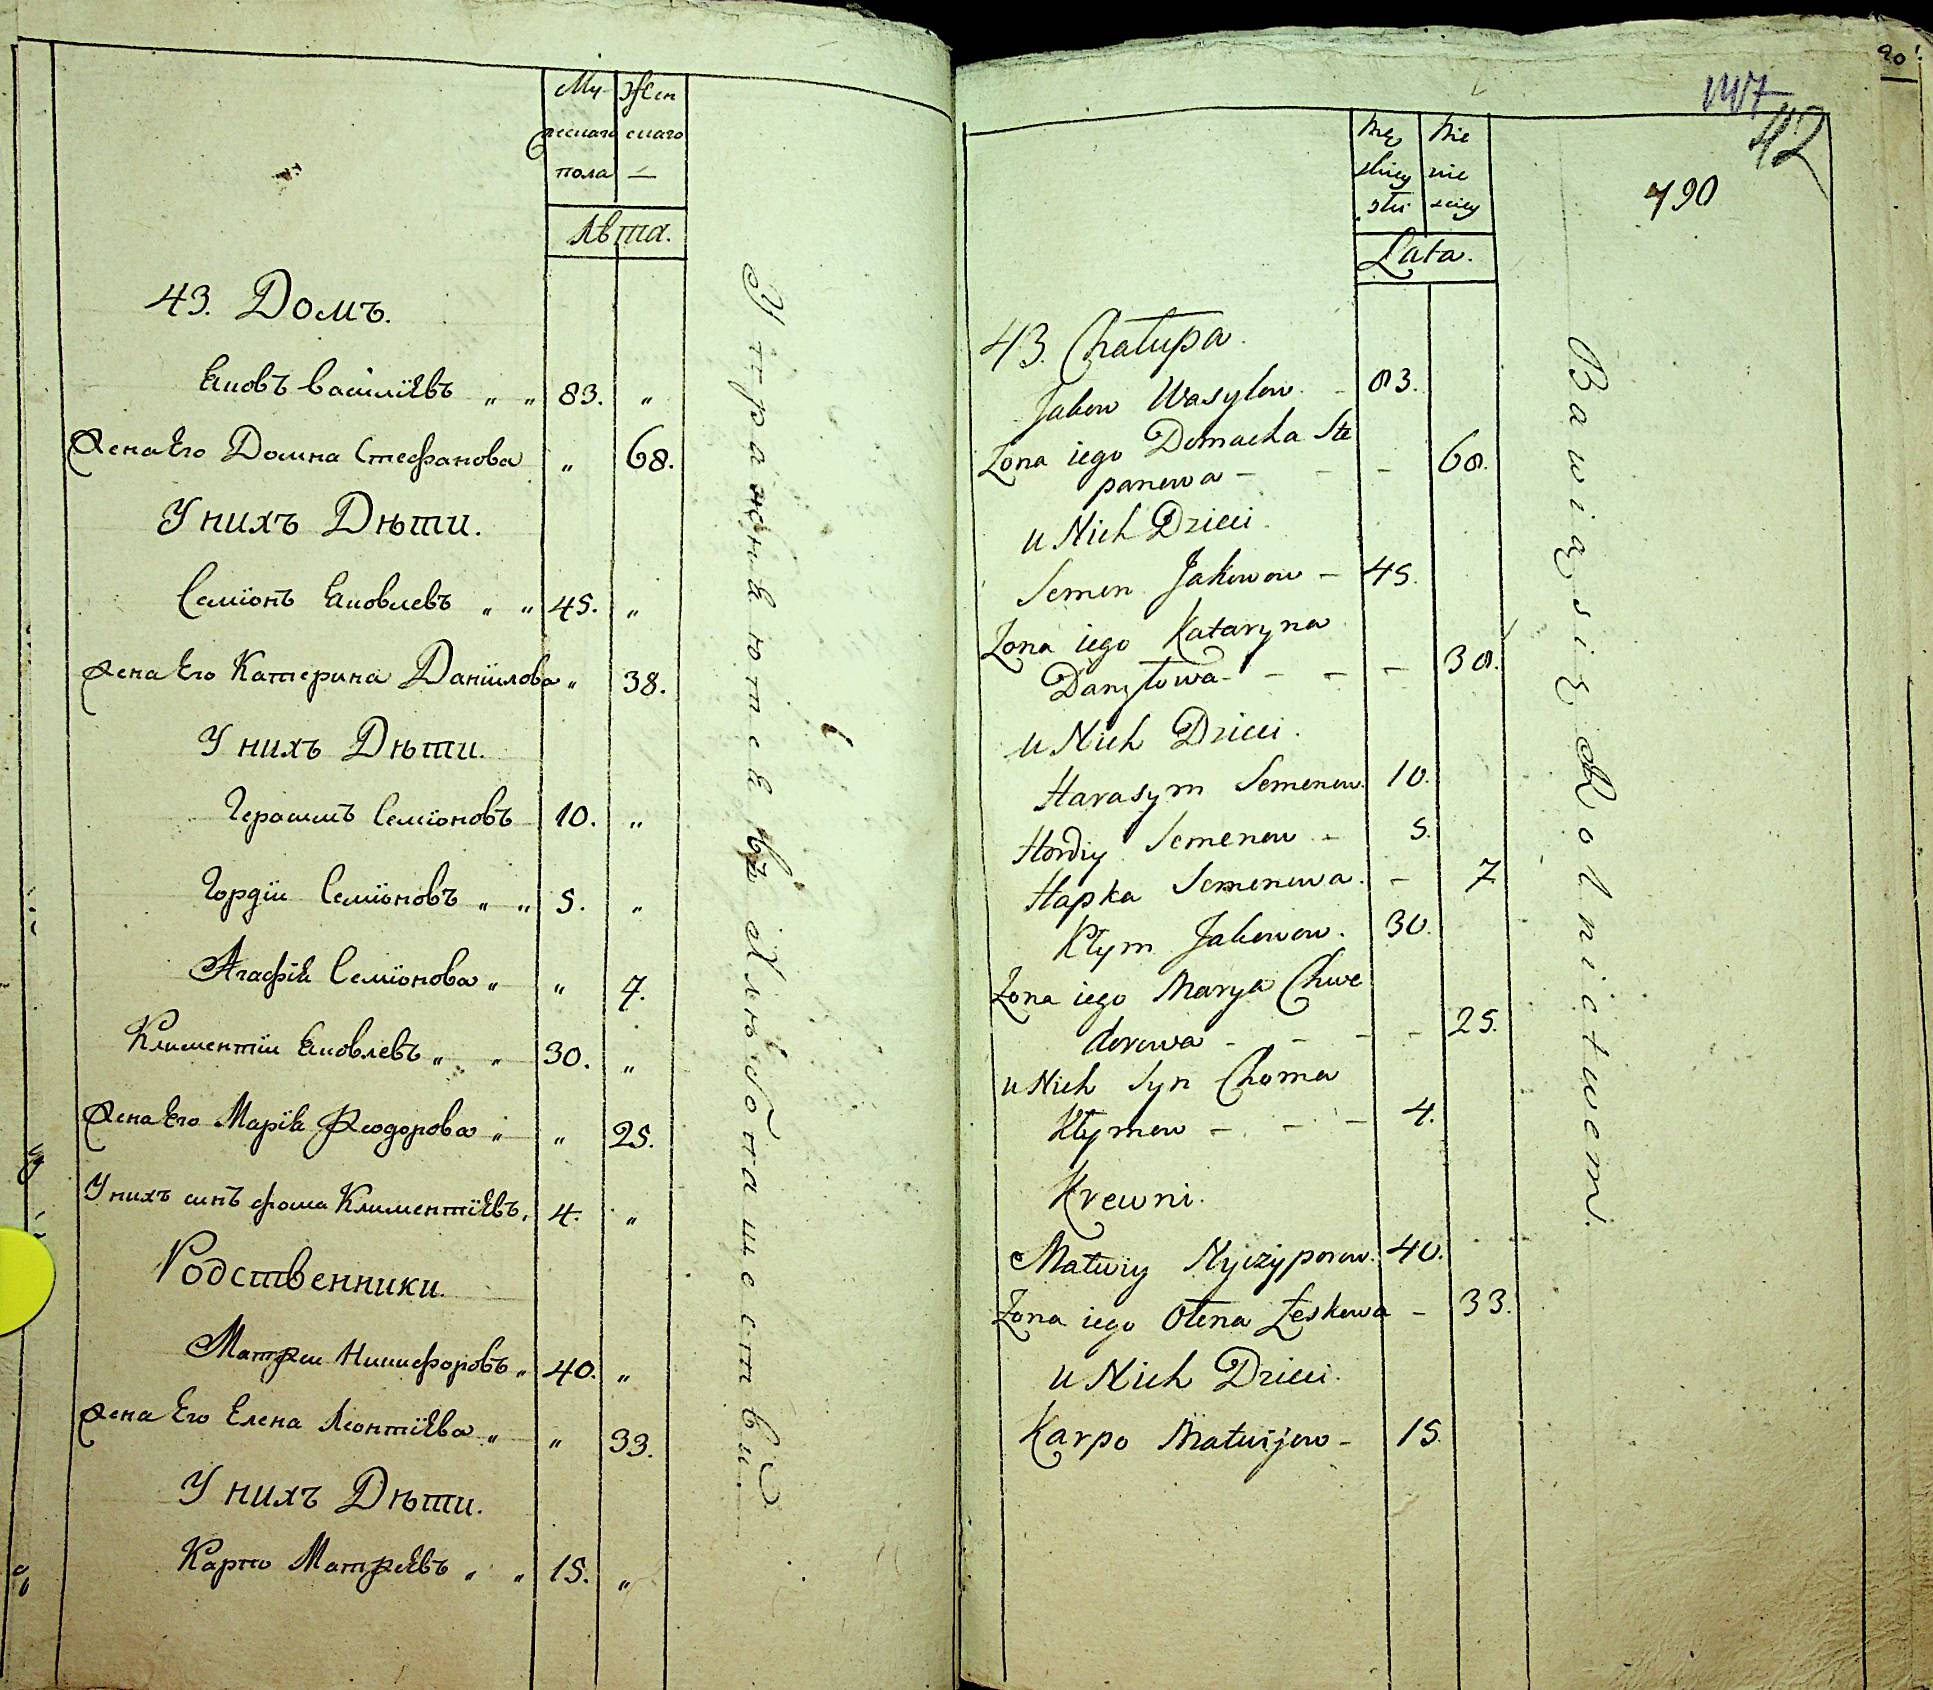 Му- Жен
жескаго скаго
пола —
Лѣта.
43. Домъ.
Яковъ Василіевъ „ „ 83. „
Жена Его Домна Стефанова „ 68.
У нихъ Дѣти.
Семіонъ Яковлевъ „ „ 45. „
Жена Его Катерина Даніилова „ 38.
У нихъ Дѣти.
Герасимъ Семіоновъ 10. „
Гордій Семіоновъ „ „ 5. „
Агафія Семіонова „ „ 7.
Климентій Яковлевъ „ „ 30. „
Жена Его Марія Ѳеодорова „ „ 25.
У нихъ синъ фома Климентіевъ. 4. „
Родственники.
Матѳей Никифоровъ „ 40. „
Жена Его Елена Леонтіева „ „ 33.
У нихъ Дѣти.
Карпо Матѳѣевъ „ „ 15. „
Упражняются въ Хлебопашествѣ.
20
42
790
Mę Nie
skiey wie
stu sciey
Lata.
43. Chałupa.
Jakow Wasylow. - 83.
Zona iego Domacha Ste
panowa - - - 68.
u Nich Dzieci.
Semen Jakowow - 45.
Zona iego Kataryna
Danyłowa - - - - 38.
u Nich Dzieci.
Harasym Semenow. 10.
Hordiy Semenow - 5.
Hapka Semenowa. - 7
Kłym Jakowow. 30.
Zona iego Marya Chwe
dorowa - - - - 25.
u Nich Syn Choma
Kłymow - - - 4.
Krewni.
Matwiy Nyczyporow. 40.
Zona iego Ołena Łeskowa - 33.
u Nich Dzieci.
Karpo Matwijow - 15.
Bawią się Rolnictwem.